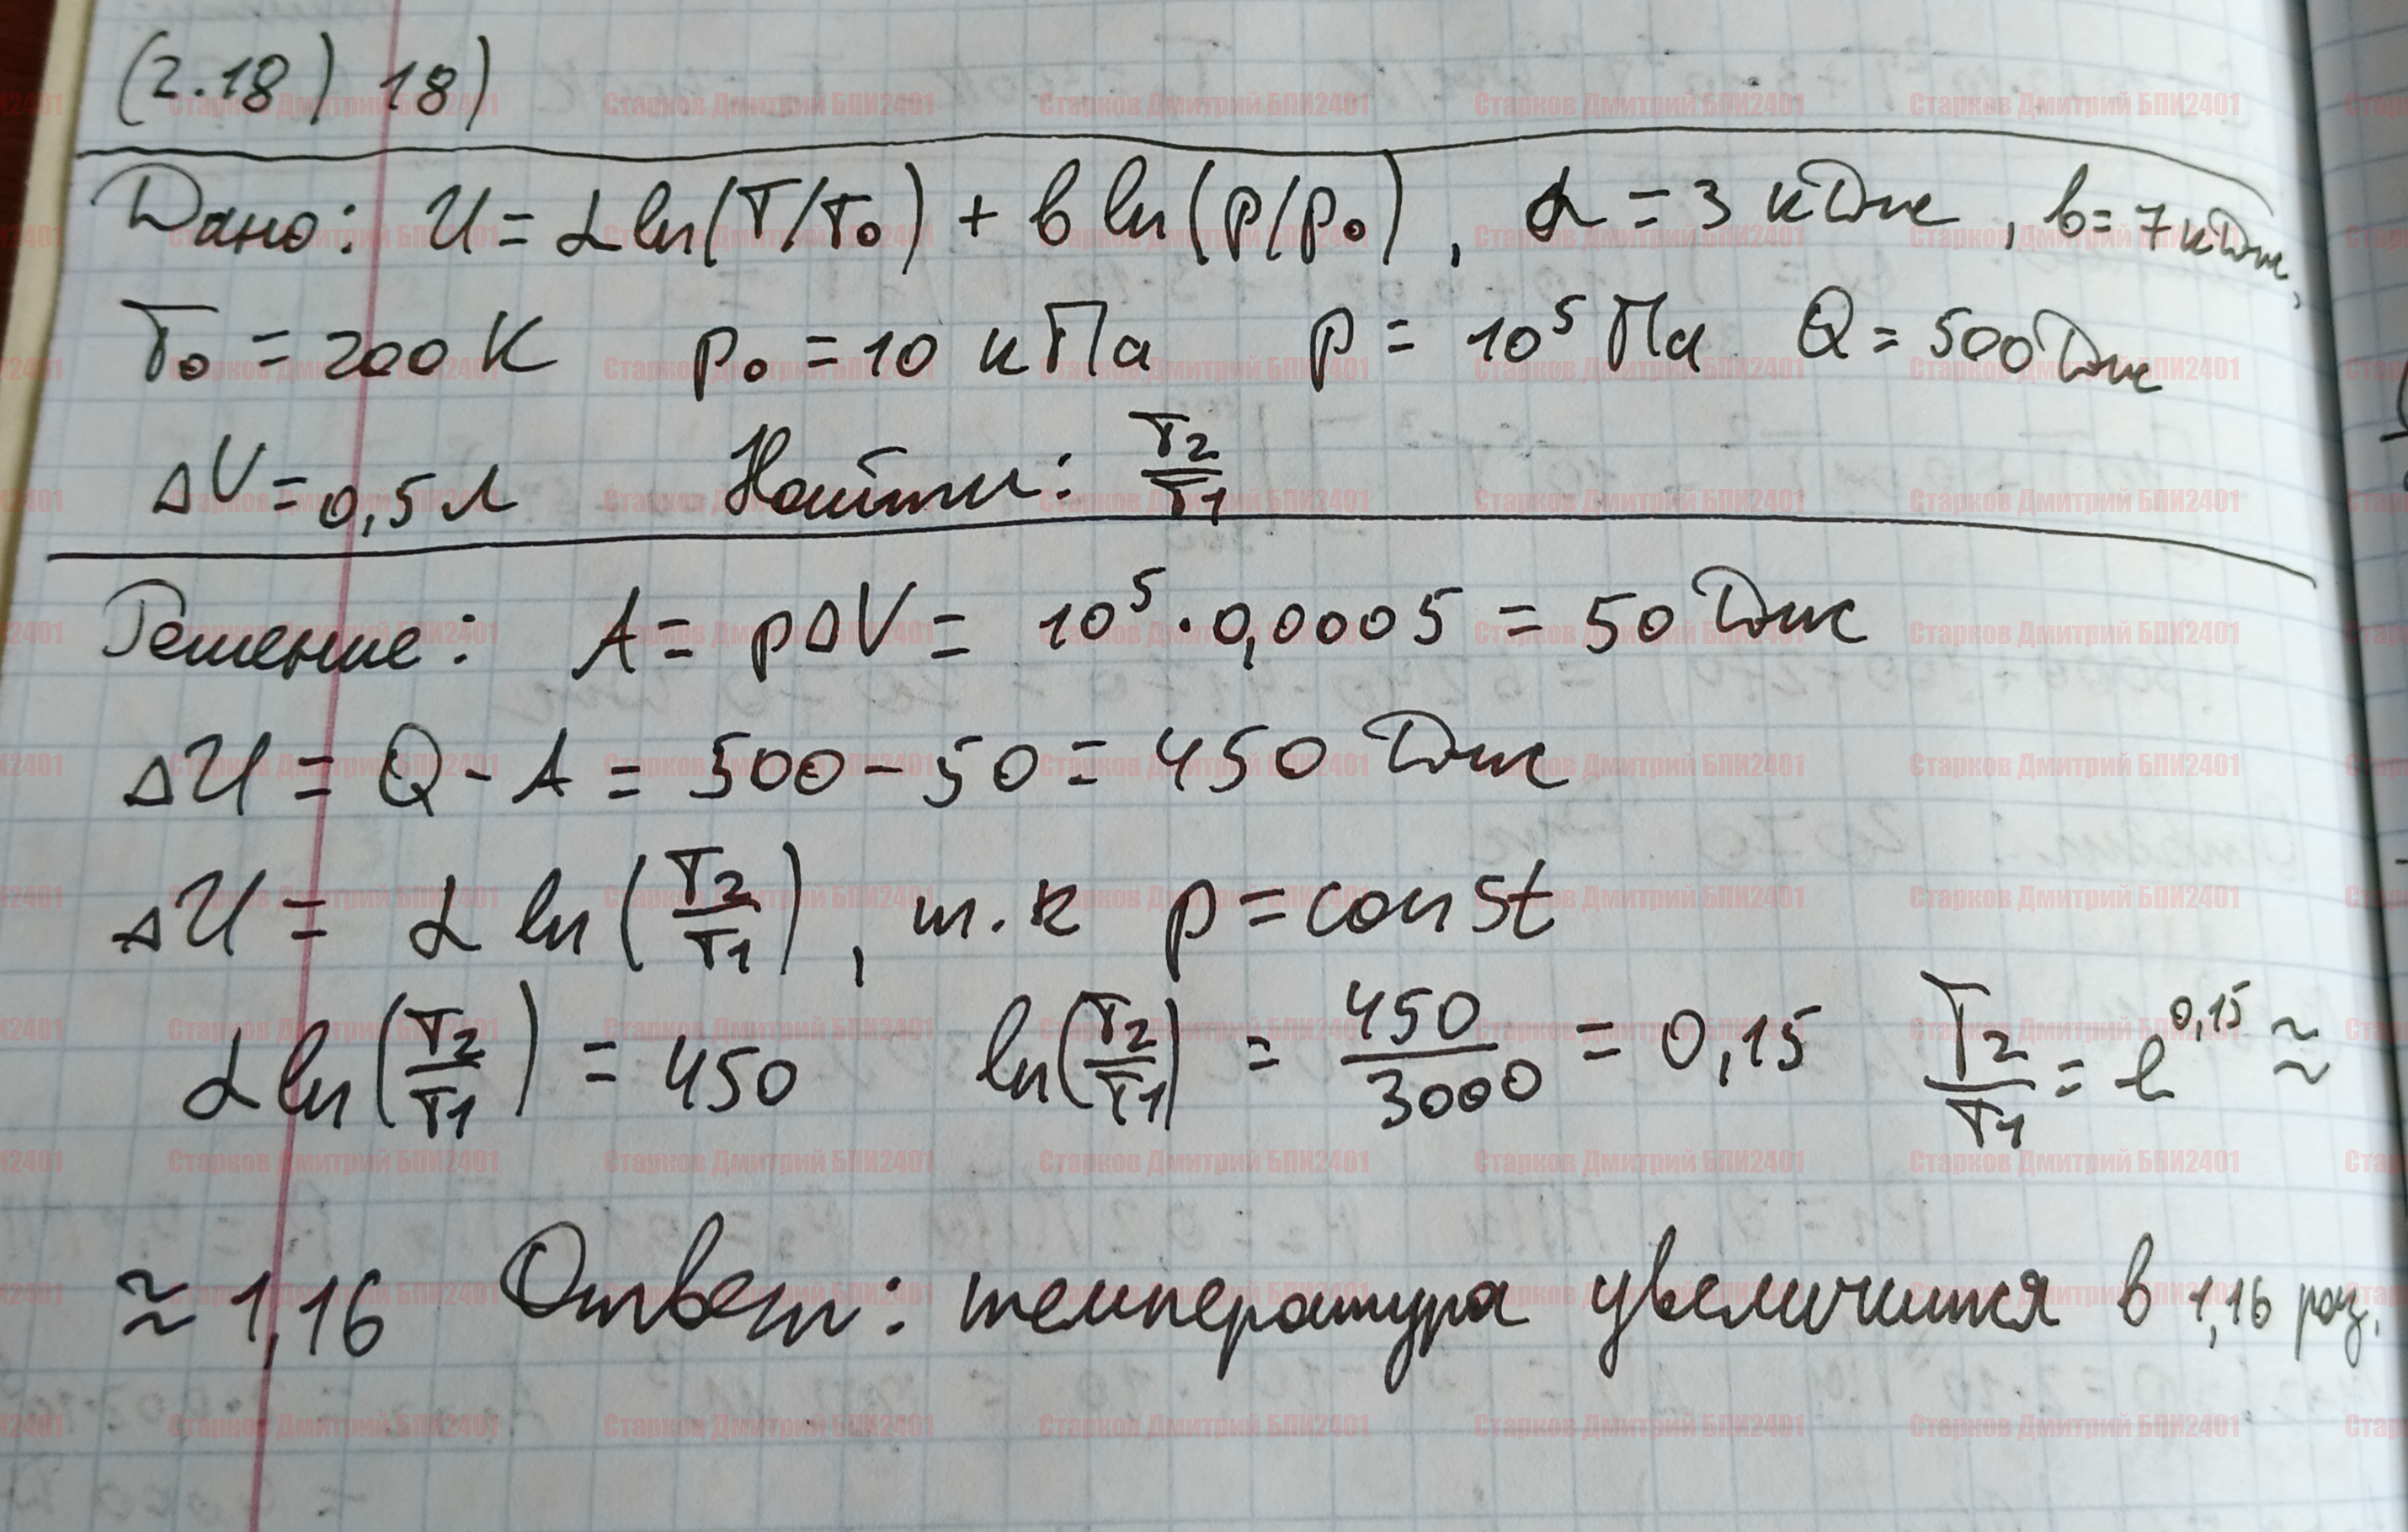 (2.18) 18)
Дано: U = α ln(T/T₀) + b ln(p/p₀), α = 3 кДж, b = 7 кДж,
T₀ = 200 К p₀ = 10 кПа p = 10⁵ Па Q = 500 Дж
ΔV = 0,5 л Найти: T₂/T₁
Решение: A = pΔV = 10⁵ · 0,0005 = 50 Дж
ΔU = Q - A = 500 - 50 = 450 Дж
ΔU = α ln(T₂/T₁), т.к p = const
α ln(T₂/T₁) = 450 ln(T₂/T₁) = 450/3000 = 0,15 T₂/T₁ = e^0,15 ≈
≈ 1,16 Ответ: температура увеличится в 1,16 раз.
Старков Дмитрий БПИ2401